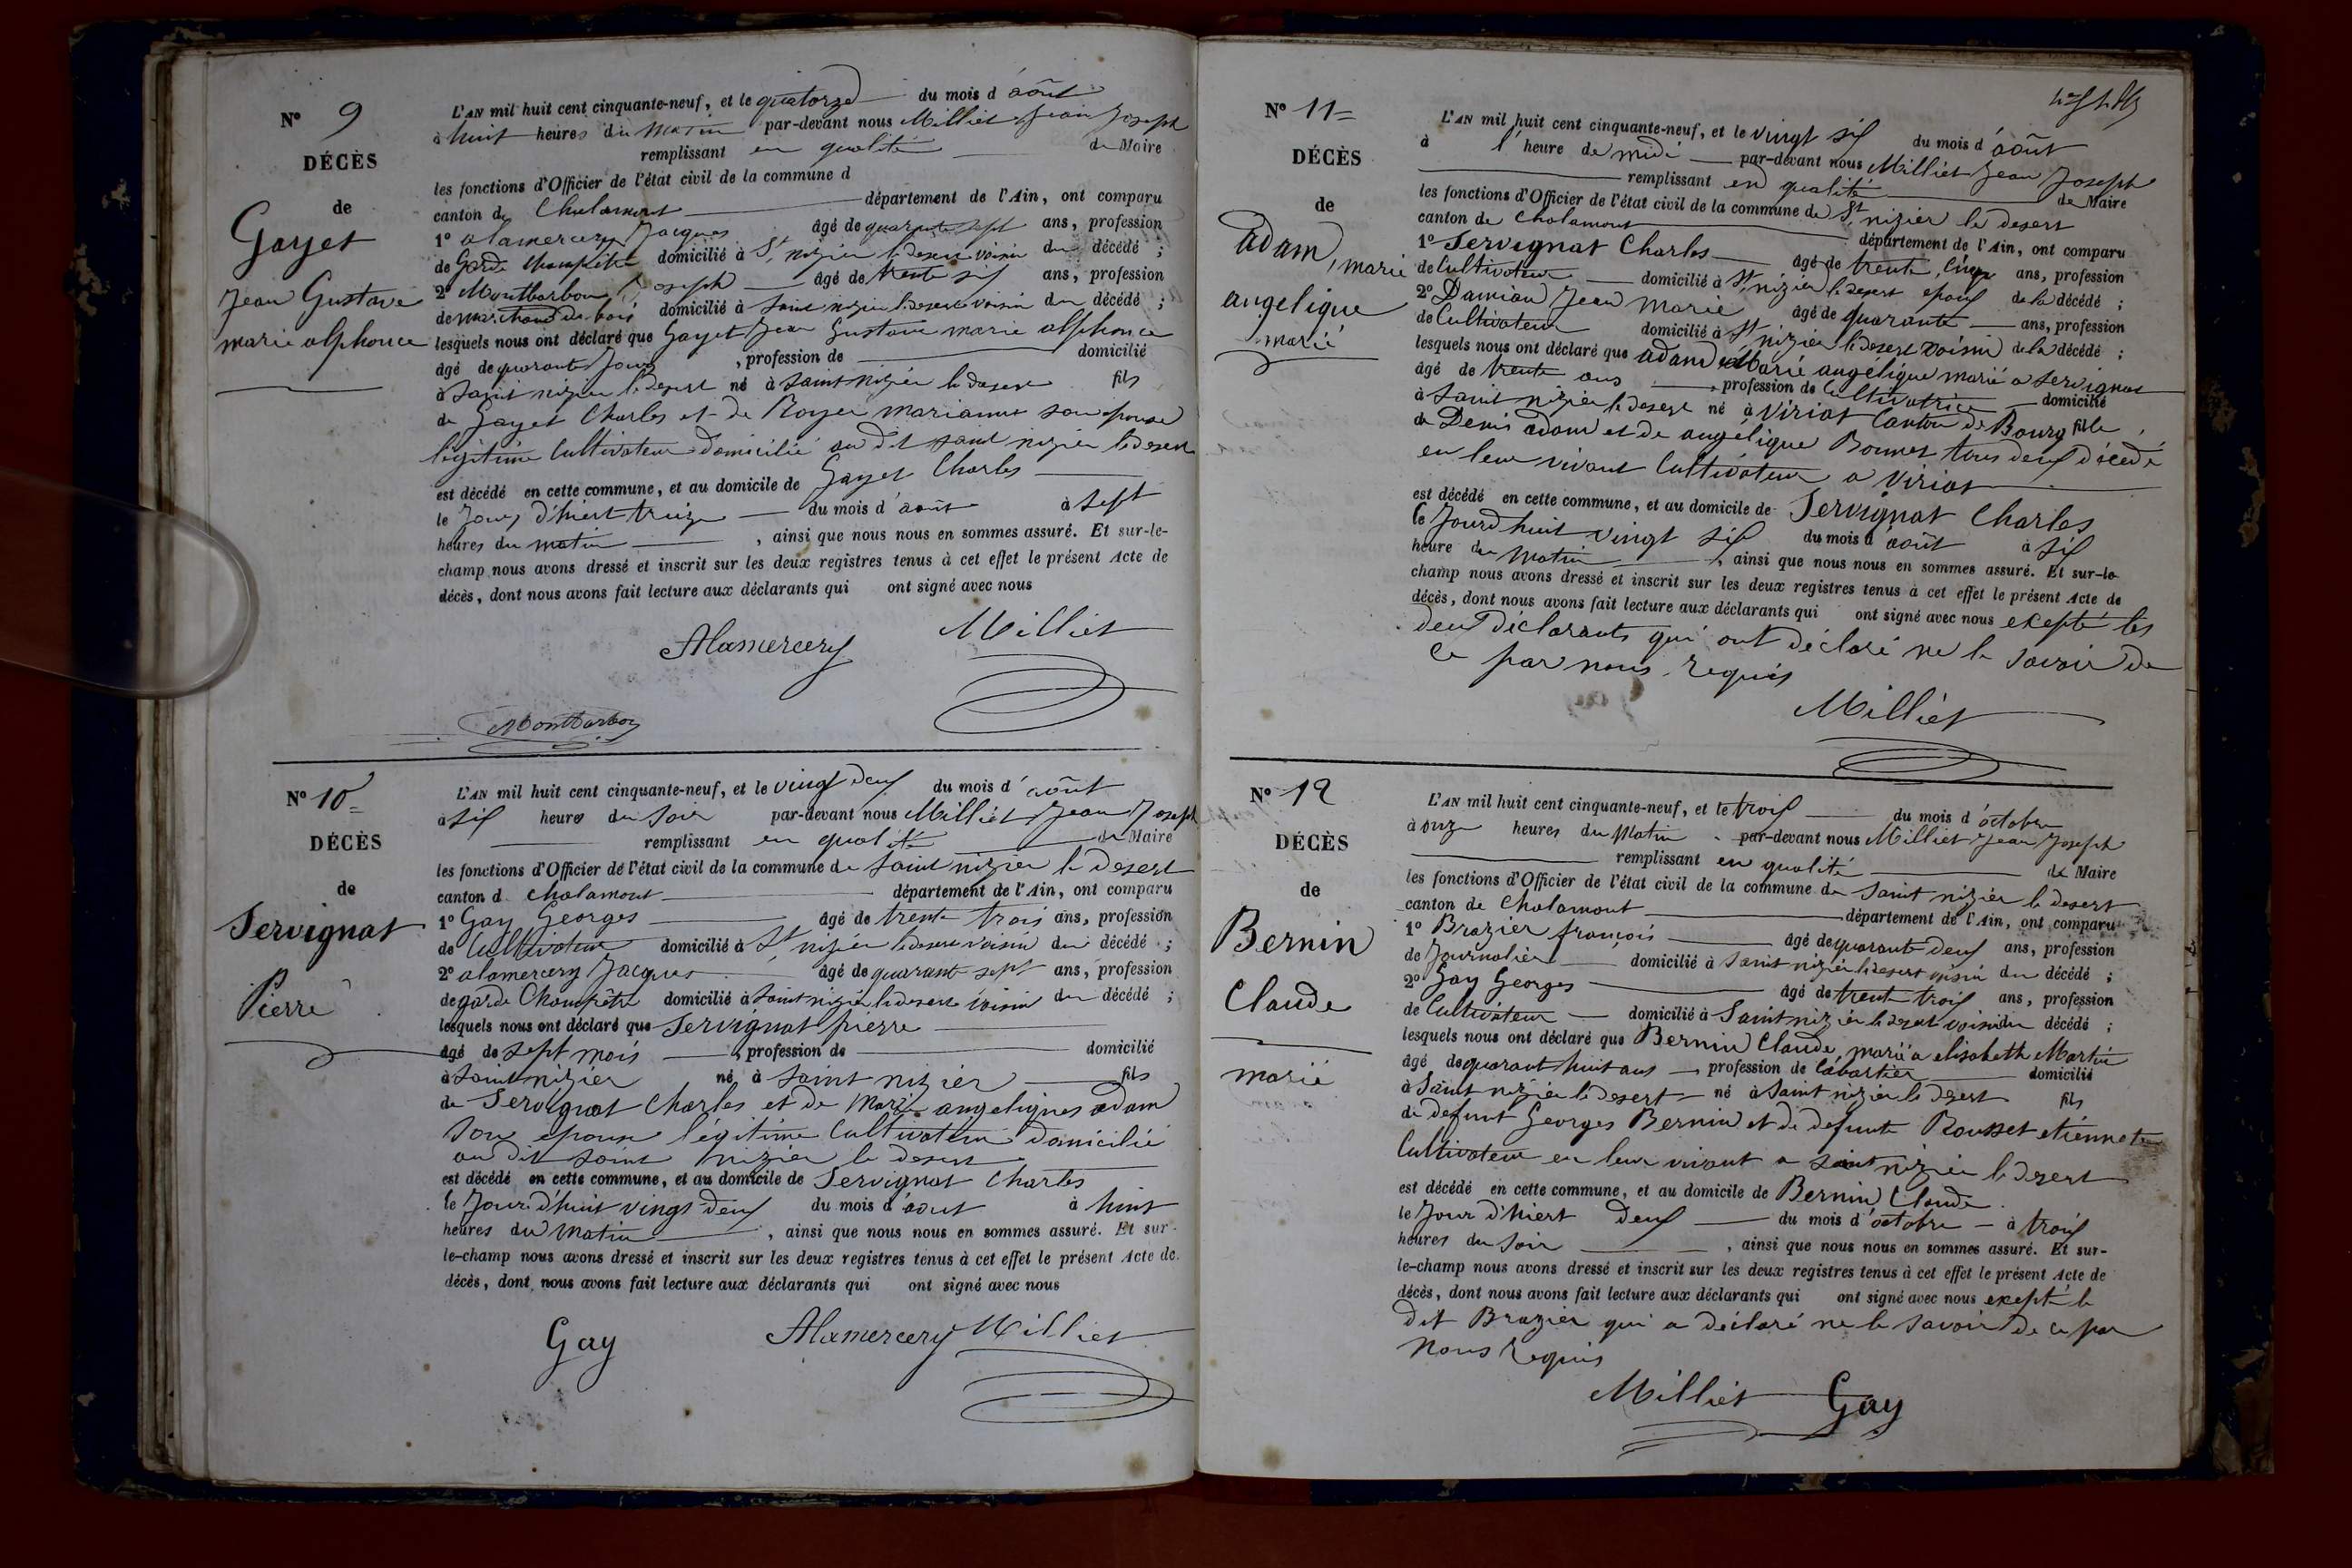 Nº 9
DÉCÈS
de
Gayet
Jean Gustave
marie alphonce
L'AN mil huit cent cinquante-neuf, et le quatorze du mois d'août
à huit heures du matin par-devant nous Milliet Jean Joseph
remplissant en qualité de Maire
les fonctions d'Officier de l'état civil de la commune d
canton de Chalamont département de l'Ain, ont comparu
1º alamercery Jacques âgé de quarante sept ans, profession
de Garde Champêtre domicilié à St nizier le desert voisin du décédé ;
2º Montbarbon Joseph âgé de trente six ans, profession
de marchand de bois domicilié à saint nizier le desert voisin du décédé ;
lesquels nous ont déclaré que Gayet Jean Gustave marie alphonce
âgé de quarante jours , profession de domicilié
à saint nizier le desert né à saint nizier le desert fils
de Gayet Charles et de Royer marianne son epouse
légitime Cultivateur domicilié au dit saint nizier le desert
est décédé en cette commune, et au domicile de Gayet Charles
le Jour d'hiert treize du mois d'août à sept
heures du matin , ainsi que nous nous en sommes assuré. Et sur-le-
champ nous avons dressé et inscrit sur les deux registres tenus à cet effet le présent Acte de
décès, dont nous avons fait lecture aux déclarants qui ont signé avec nous
Alamercery Milliet
Montbarbon
Nº 10
DÉCÈS
de
Servignat
Pierre
L'AN mil huit cent cinquante-neuf, et le vingt deux du mois d'août
à six heures du soir par-devant nous Milliet Jean Joseph
remplissant en qualité de Maire
les fonctions d'Officier de l'état civil de la commune de saint nizier le desert
canton d chalamont département de l'Ain, ont comparu
1º Gay Georges âgé de trente trois ans, profession
de Cultivateur domicilié à St nizier le desert voisin du décédé ;
2º alamercery Jacques âgé de quarante sept ans, profession
de garde Champêtre domicilié à saint nizier le desert voisin du décédé ;
lesquels nous ont déclaré que Servignat pierre
âgé de sept mois , profession de domicilié
à saint nizier né à saint nizier fils
de Servignat Charles et de Marie angeliques adam
son epouse légitime Cultivateur domicilié
au dit saint nizier le desert
est décédé en cette commune, et au domicile de Servignat Charles
le Jour d'huit vingt deux du mois d'aout à huit
heures du matin , ainsi que nous nous en sommes assuré. Et sur-
le-champ nous avons dressé et inscrit sur les deux registres tenus à cet effet le présent Acte de
décès, dont nous avons fait lecture aux déclarants qui ont signé avec nous
Gay Alamercery Milliet
Nº 11
DÉCÈS
de
adam, marie
angelique
marié
L'AN mil huit cent cinquante-neuf, et le vingt six du mois d'août
à l'heure de midi par-devant nous Milliet Jean Joseph
remplissant en qualité de Maire
les fonctions d'Officier de l'état civil de la commune de St nizier le desert
canton de chalamont département de l'Ain, ont comparu
1º Servignat Charles âgé de trente cinq ans, profession
de Cultivateur domicilié à St nizier le desert epoux de la décédé ;
2º Damian Jean Marie âgé de quarante ans, profession
de Cultivateur domicilié à St nizier le desert voisin de la décédé ;
lesquels nous ont déclaré que adam Marie angélique marié a servignat
âgé de trente ans , profession de Cultivatrice domicilié
à saint nizier le desert né à Viriat Canton de Bourg fille
de Denis adam et de angélique Bonnet tous deux décédé
en leur vivant Cultivateur a Viriat
est décédé en cette commune, et au domicile de Servignat Charles
le Jourd huit vingt six du mois d'août à six
heure du matin , ainsi que nous nous en sommes assuré. Et sur-le-
champ nous avons dressé et inscrit sur les deux registres tenus à cet effet le présent Acte de
décès, dont nous avons fait lecture aux déclarants qui ont signé avec nous exepté les
deux déclarants qui ont déclaré ne le savoir de
ce par nous requis
Milliet
Nº 12
DÉCÈS
de
Bernin
Claude
marié
L'AN mil huit cent cinquante-neuf, et le trois du mois d'octobre
à onze heures du matin par-devant nous Milliet Jean Joseph
remplissant en qualité de Maire
les fonctions d'Officier de l'état civil de la commune de saint nizier le desert
canton de Chalamont département de l'Ain, ont comparu
1º Brazier françois âgé de quarante deux ans, profession
de Journalier domicilié à saint nizier le desert voisin du décédé ;
2º Gay Georges âgé de trente trois ans, profession
de Cultivateur domicilié à Saint nizier le desert voisin du décédé ;
lesquels nous ont déclaré que Bernin Claude, marié a elisabeth Martin
âgé de quarant huit ans , profession de Cabartier domicilié
à Saint nizier le desert né à Saint nizier le desert fils
de defunt Georges Bernin et de defunte Rousset etiennete
Cultivateur en leur vivant a saint nizier le desert
est décédé en cette commune, et au domicile de Bernin Claude
le Jour d'hiert deux du mois d'octobre à trois
heures du soir , ainsi que nous nous en sommes assuré. Et sur-
le-champ nous avons dressé et inscrit sur les deux registres tenus à cet effet le présent Acte de
décès, dont nous avons fait lecture aux déclarants qui ont signé avec nous exepté le
dit Brazier qui a déclaré ne le savoir de ce par
nous requis
Milliet Gay